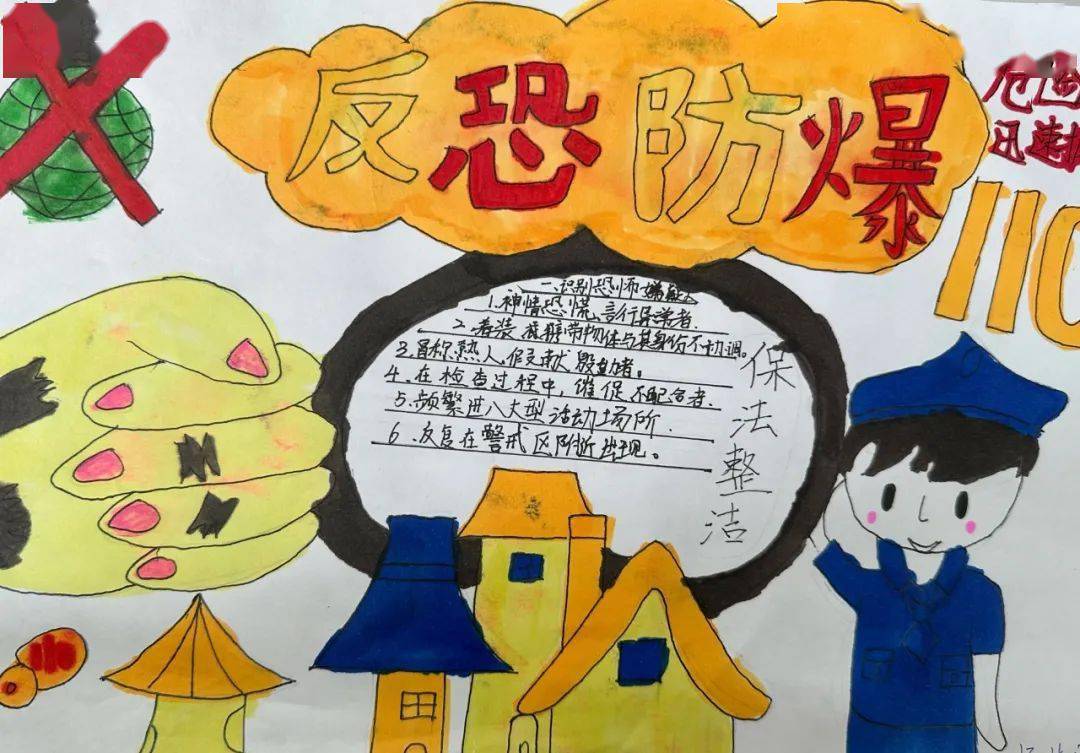 反恐防爆
迅速
110
一.识别恐怖嫌疑人
1.神情恐慌、言行异常者.
2.着装、携带物体与其身份不协调。
3.冒称熟人、假献殷勤者。
4.在检查过程中,催促不配合者.
5.频繁进八大型活动场所.
6.反复在警戒区附近出现。
保法整洁
110